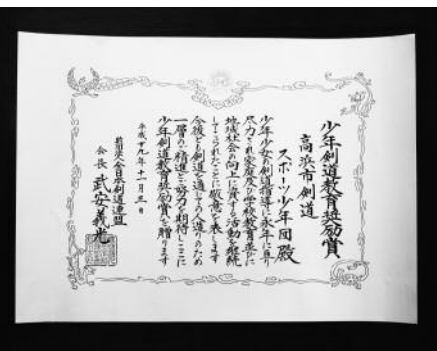 少年剣道教育奨励賞
高浜市剣道
スポーツ少年団殿
少年少女の剣道指導に永年に亘り
尽力され家庭及び学校教育並びに
地域社会の向上に資する活動を継続
してこられたことに敬意を表します
今後とも剣道を通しての人造りのため
一層のご精進とご努力を期待しここに
少年剣道教育奨励賞を贈ります
平成十九年十一月三日
財団法人全日本剣道連盟
会長 武安義光